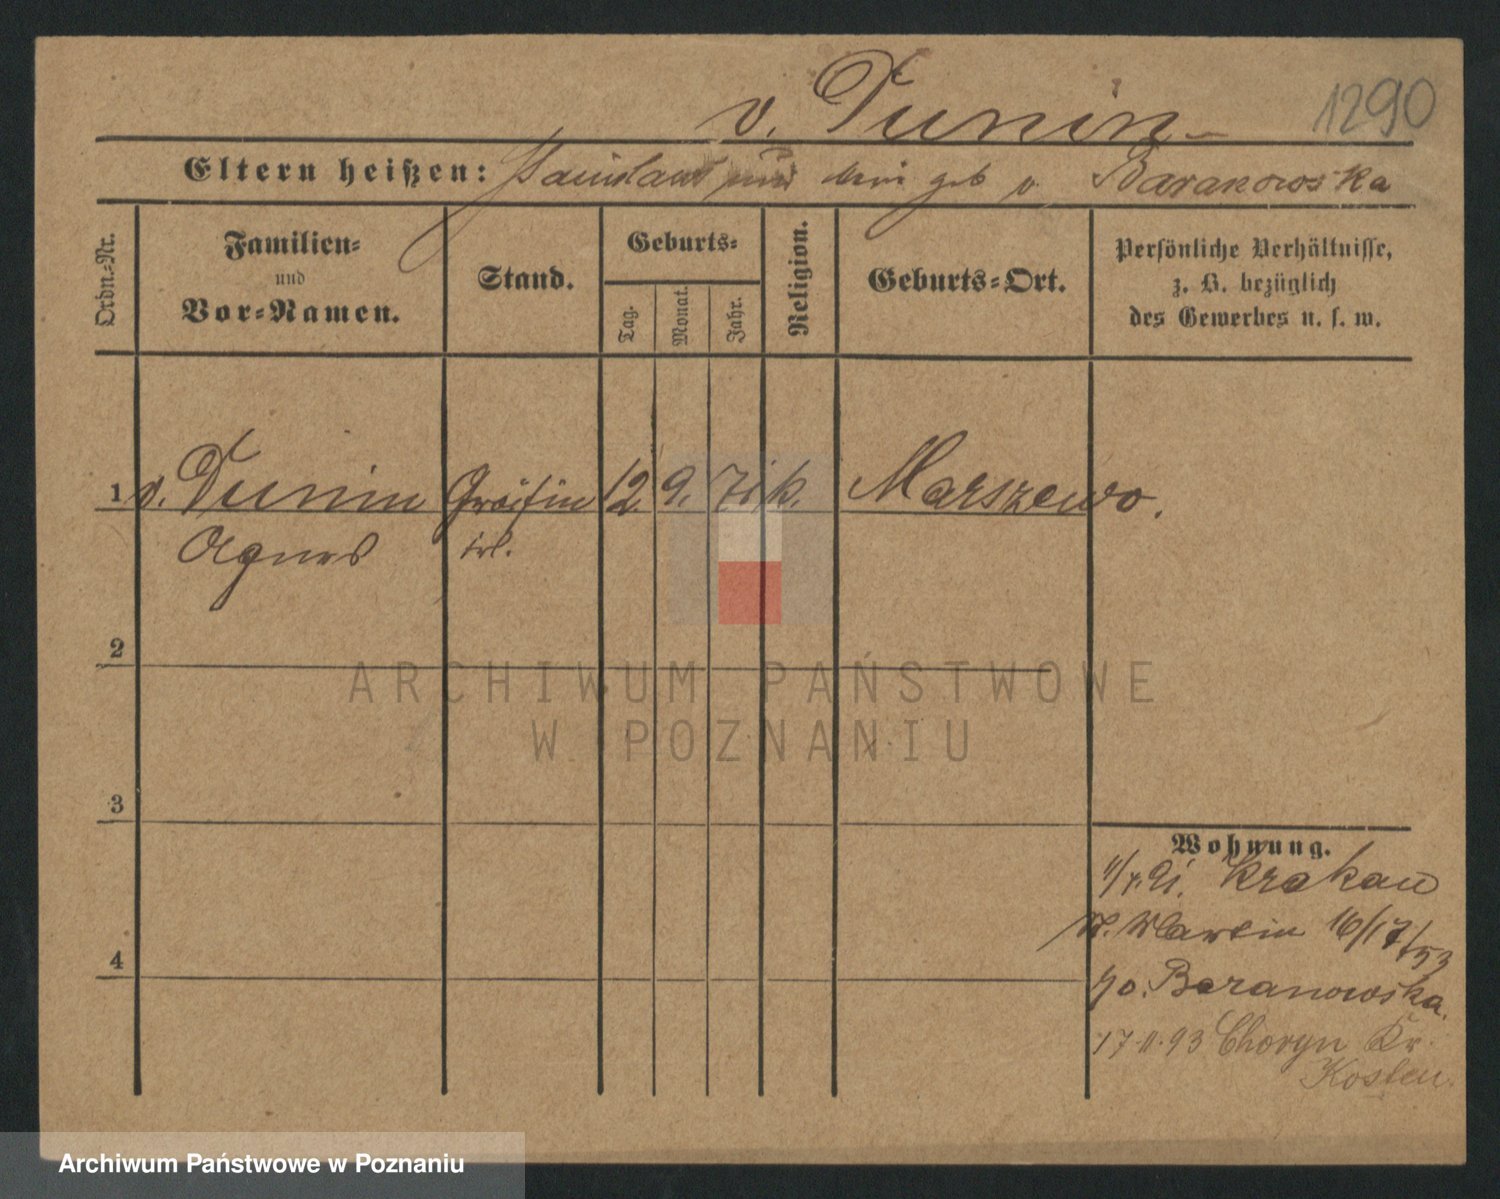 v. Dunin 1290
Eltern heißen: Stanislaus und geb v. Baranowska
Ordn.-Nr.
Familien-
und
Vor-Namen.
Stand.
Geburts-
Tag.
Monat.
Jahr.
Religion.
Geburts-Ort.
Persönliche Verhältnisse,
z. B. bezüglich
des Gewerbes u. s. w.
1 v. Dunin Gräfin 12. 9. 71 k. Marszewo.
Agnes
2
3
4
Wohnung.
Krakau
St. Martin 16/17
Baranowska.
17.11.93 Choryn Kr.
Kosten.
ARCHIWUM PAŃSTWOWE
W POZNANIU
Archiwum Państwowe w Poznaniu